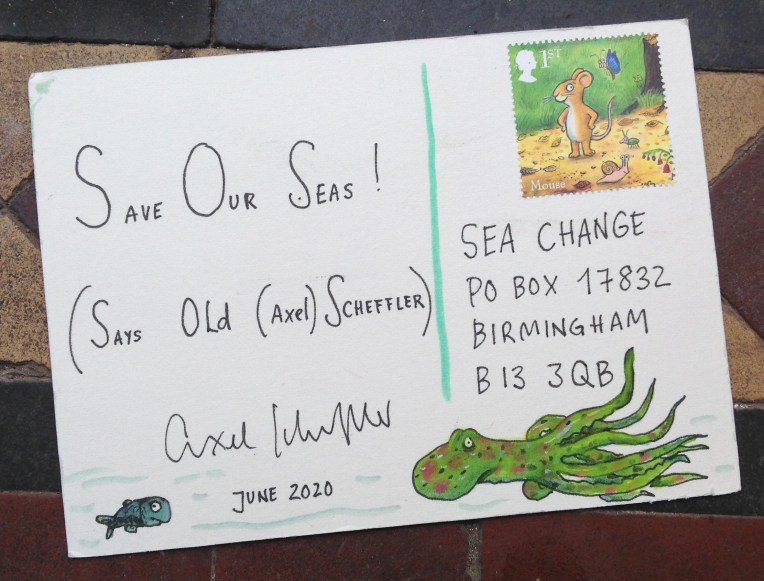 SAVE OUR SEAS!
(SAYS OLd (AxEL) SCHEFFLER)
Axel Scheffler
JUNE 2020
1ST
Mouse
SEA CHANGE
PO BOX 17832
BIRMINGHAM
B13 3QB